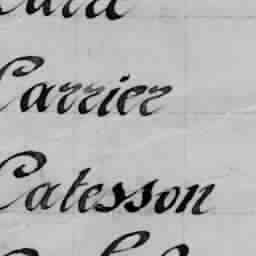 Carrier
Catesson